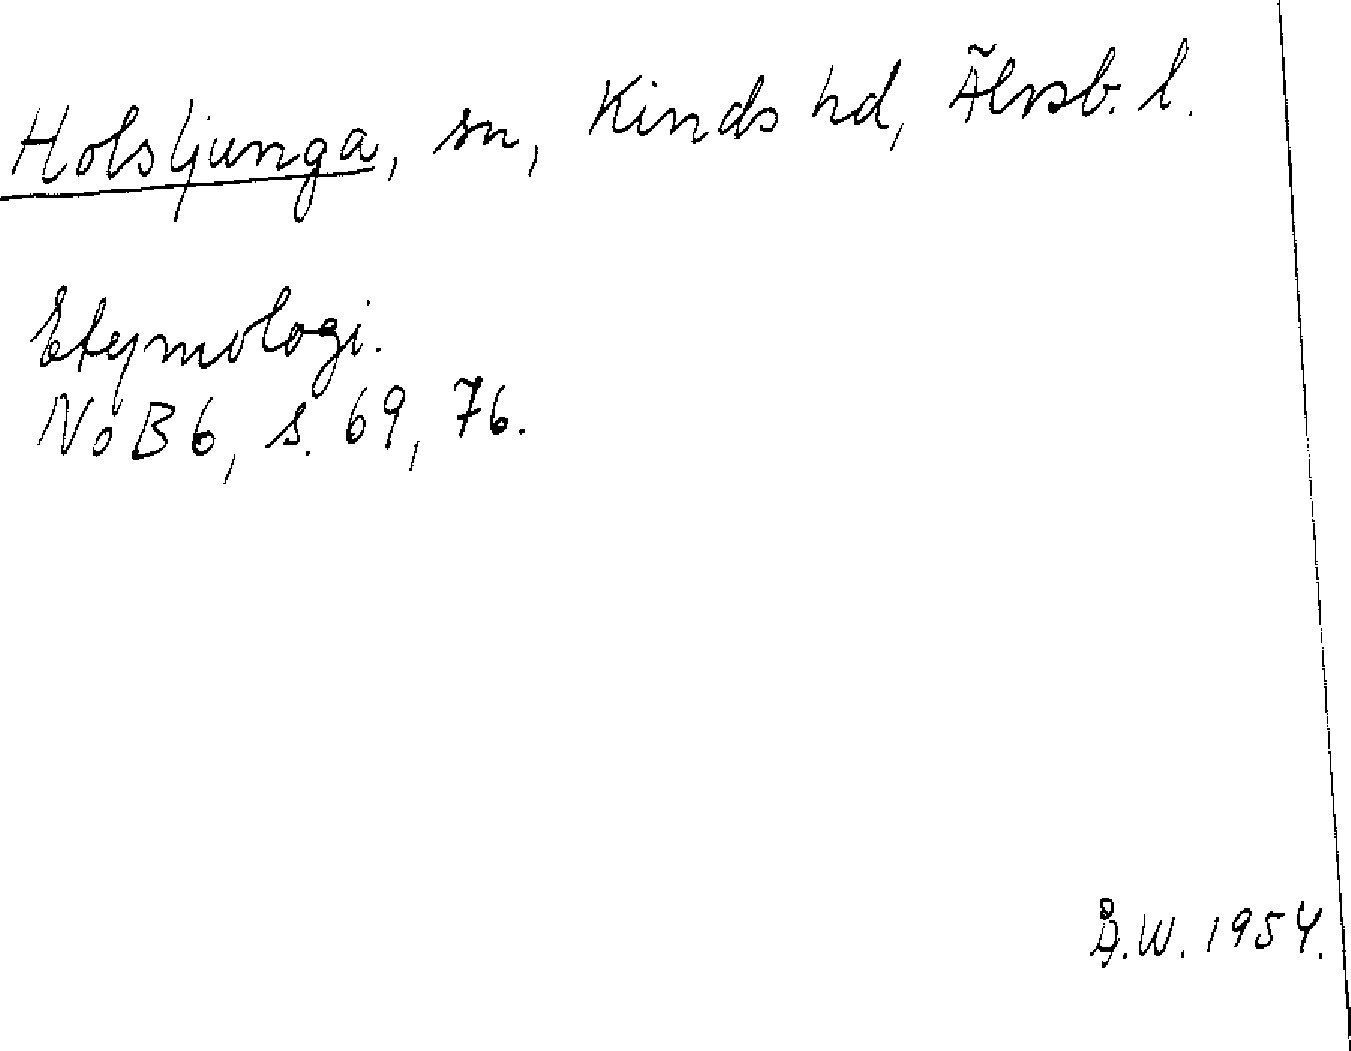 Holsljunga, sn, Kinds hd, Älvsb. l.
Etymologi.
NoB 6, s. 69, 76.
Å.W. 1954.